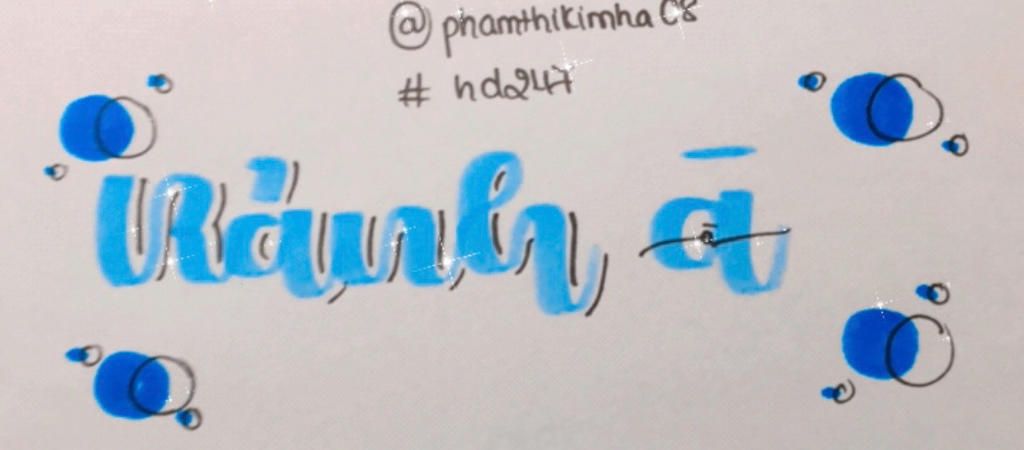 @phamthikimha08
# hd247
Rảnh ā
ā